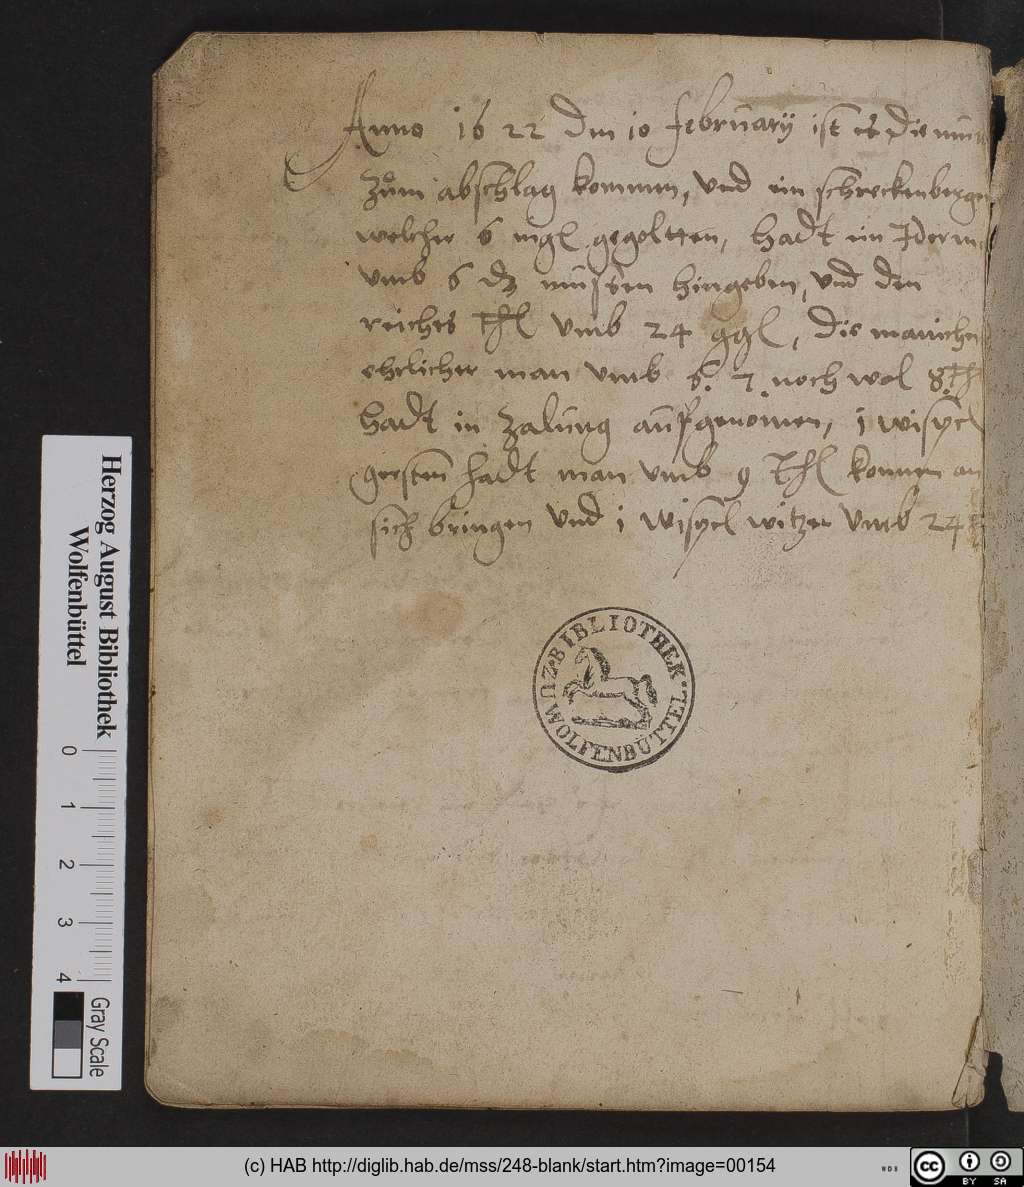 Anno 1622 den 10 Februarÿ ist es die mün
zům abschlag kommen, vnd ein schreckenberge
welcher 6 mgl gegoltten, hadt ein Jder m
vmb 6 ₰ müssen hingeben, vnd den
reiches Thl vmb 24 ggl, die manicher
ehrlicher man vmb 6. 7. noch wol 8 Th
hadt in zalung auffgenomen, j wispel
gersten hadt man vmb 9 Thl konnen an
sich bringen vnd j wispel witzen vmb 24
BIBLIOTHEK ZU WOLFENBÜTTEL
Herzog August Bibliothek
Wolfenbüttel
0 1 2 3 4
Gray Scale
(c) HAB http://diglib.hab.de/mss/248-blank/start.htm?image=00154
WDB
cc BY SA